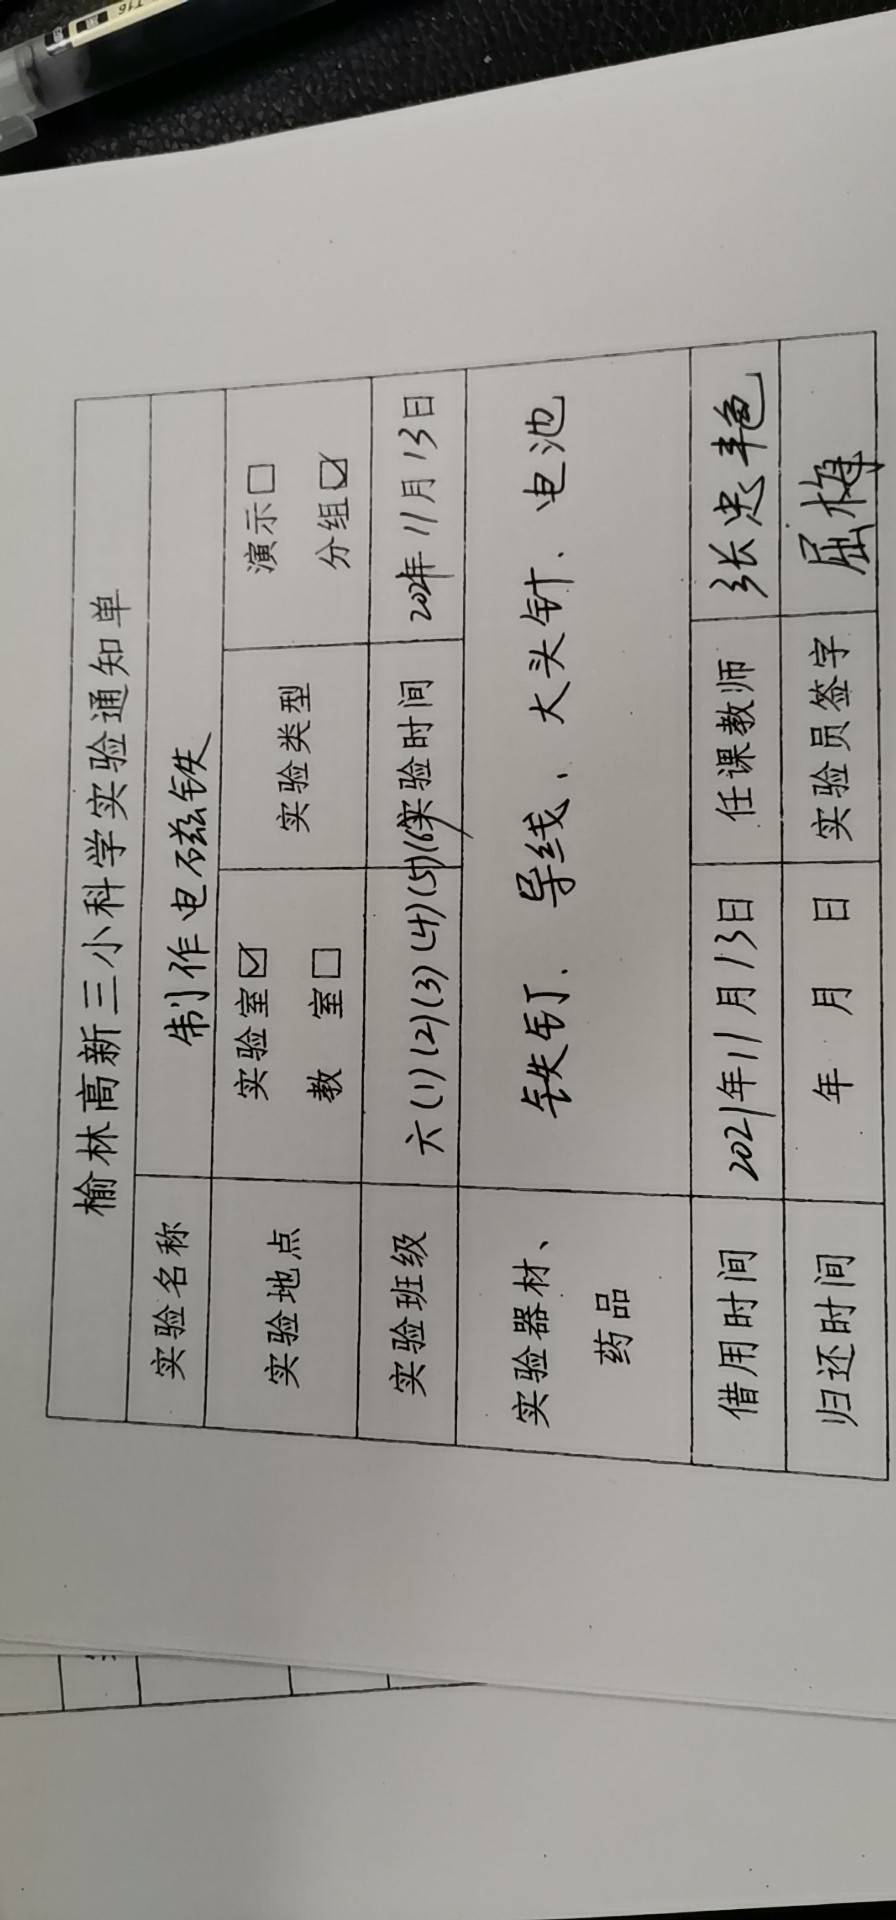 榆林高新三小科学实验通知单
实验名称 制作电磁铁
实验地点 实验室☑ 教 室□ 实验类型 演示□ 分组☑
实验班级 六(1)(2)(3)(4)(5)(6) 实验时间 2021年11月13日
实验器材、药品 铁钉、导线、大头针、电池
借用时间 2021年11月13日 任课教师 张忠艳
归还时间 年 月 日 实验员签字 屈梅
T16